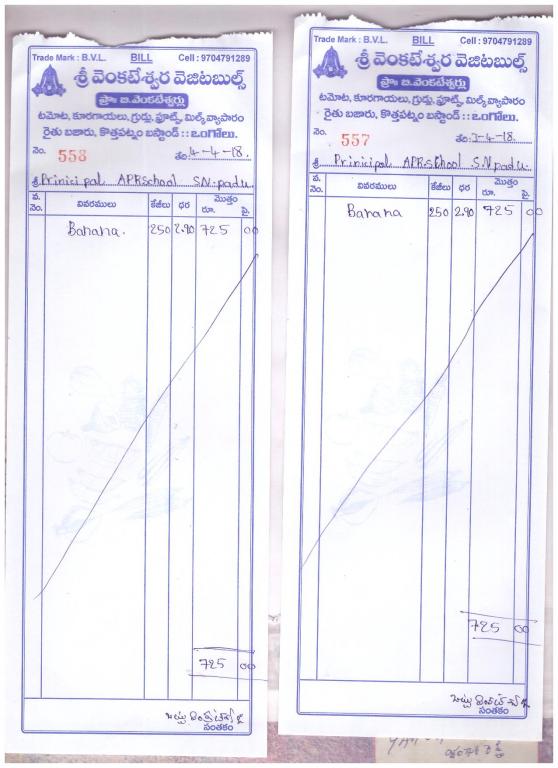 Trade Mark : B.V.L. BILL Cell : 9704791289
శ్రీ వెంకటేశ్వర వెజిటబుల్స్
ప్రొః బి.వెంకటేశ్వర్లు
టమోట, కూరగాయలు, గ్రుడ్లు, ఫ్రూట్స్, మిల్క్ వ్యాపారం
రైతు బజారు, కొత్తపట్నం బస్టాండ్ :: ఒంగోలు.
నెం. 558 తేది. 4-4-18.
శ్రీ Prinicipal APRschool S.N.padu
వ. నెం. వివరములు కేజీలు ధర మొత్తం రూ. పై.
Banana. 250 2.90 725 00
725 00
సంతకం
Trade Mark : B.V.L. BILL Cell : 9704791289
శ్రీ వెంకటేశ్వర వెజిటబుల్స్
ప్రొః బి.వెంకటేశ్వర్లు
టమోట, కూరగాయలు, గ్రుడ్లు, ఫ్రూట్స్, మిల్క్ వ్యాపారం
రైతు బజారు, కొత్తపట్నం బస్టాండ్ :: ఒంగోలు.
నెం. 557 తేది. -4-18.
శ్రీ Prinicipal APRschool S.N.padu.
వ. నెం. వివరములు కేజీలు ధర మొత్తం రూ. పై.
Banana 250 2.90 725 00
725 00
సంతకం